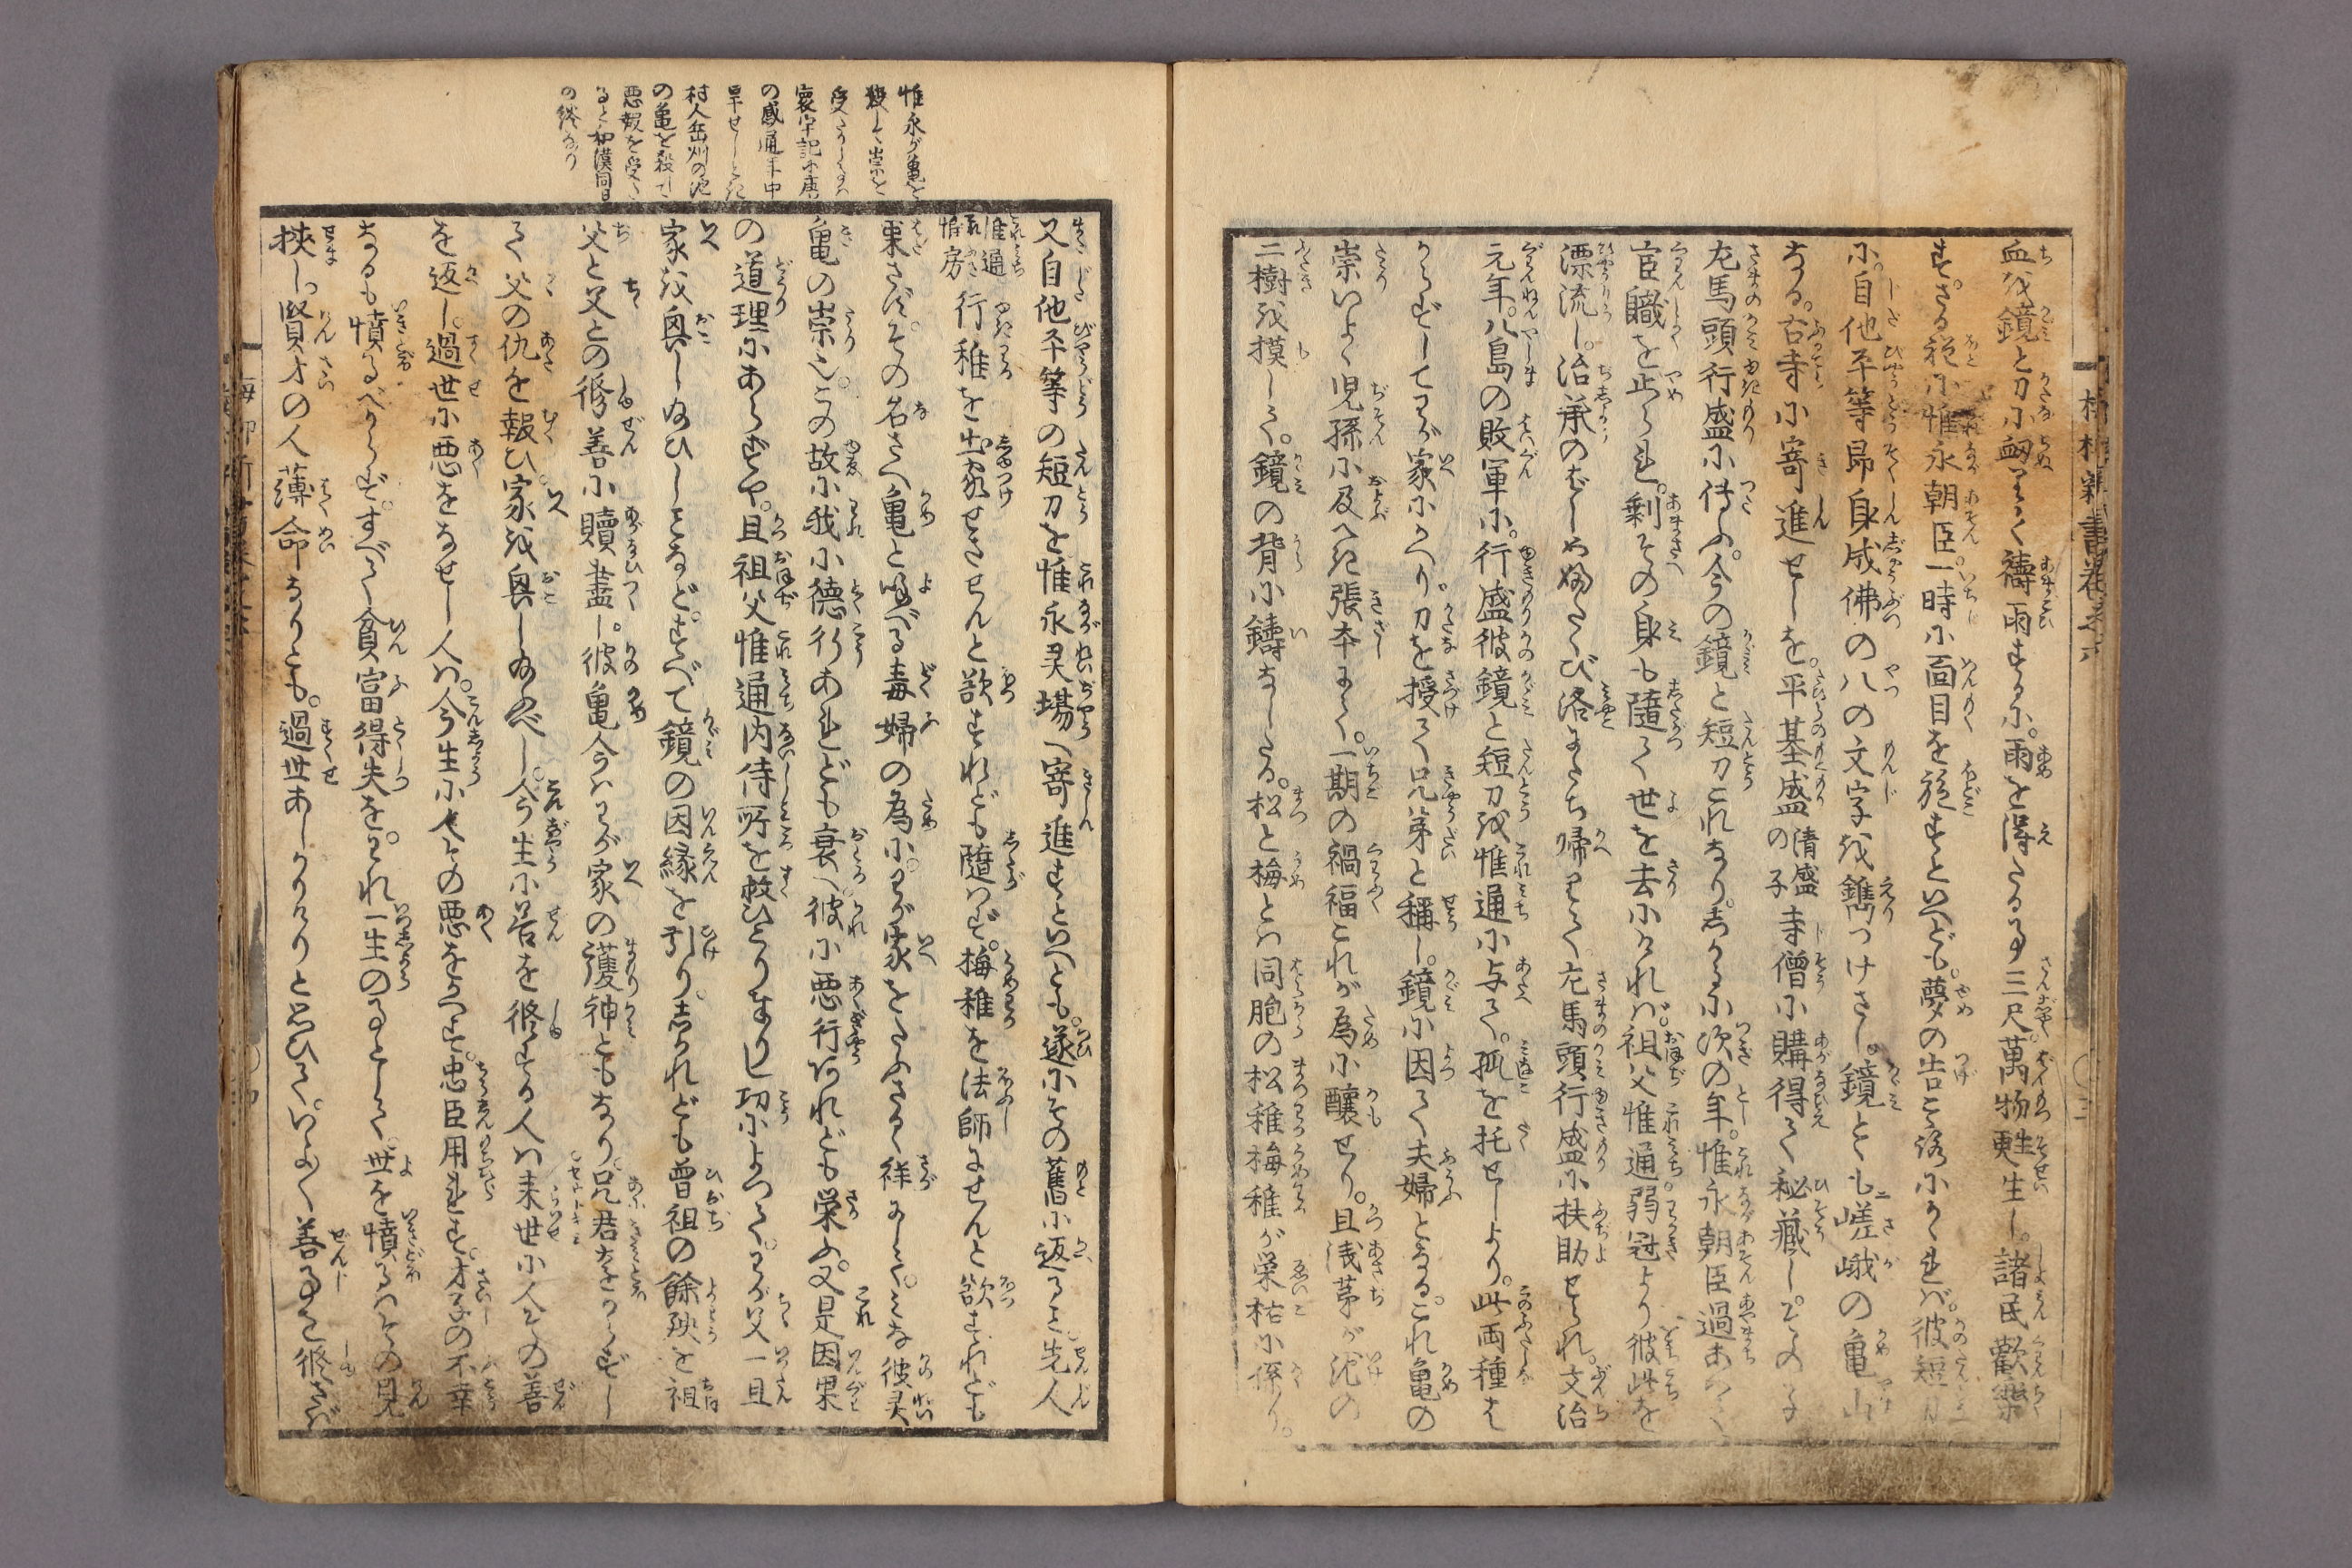 血を鏡と刀に衂りて禱雨するに。雨を得たる事三尺。萬物甦生し。諸民歡樂
す。さる程に惟永朝臣。一時に面目を施すといへども。夢の告に誘
に。自他平等即身成佛の八の文字を鐫つけさし。鏡とも嵯峨の亀山
なる。古寺に寄進せしを。平基盛清盛の子寺僧に購得て秘藏し。その子
左馬頭行盛に傳ふ。今の鏡と短刀これなり。しかるに次の年。惟永朝臣過ありて
官職を止られ。剰その身も隨て世を去にければ。祖父惟通弱冠より彼此を
漂流し。治承のはじめふたゝび洛にたち帰りて。左馬頭行盛に扶助せられ。文治
元年。八島の敗軍に。行盛彼鏡と短刀を惟通に与へて。孤を托せしより。此両種は
からずしてわが家にかへり。刀を授て兄弟と稱し。鏡に因て夫婦となる。これ亀の
祟いよゝ児孫に及べき張本にて。一期の禍福これが為に醸せり。且浅茅が沱の
二樹を摸して。鏡の背に鑄なしたる。松と梅とは同胞の松稚梅稚が栄枯に係り。
惟永が亀を
殺して祟を
受たりしは
寰宇記に唐
の咸通年中
旱せしとき
村人岳州の池
の亀を殺して
悪報を受た
ると和漢同日
の談なり
又自他平等の短刀を惟永灵場へ寄進すといへとも。遂にその舊に返ると。先人
惟通惟房行稚を出家せさせんと欲すれども隨はず。梅稚を法師にせんと欲すれども
果さず。その名さへ亀と喚べる毒婦の為に。わが家をたふさるゝ祥にして。みな彼灵
亀の祟也。この故に我に德行あれども衰へ。彼に悪行あれども栄ふ。又是因果
の道理にあらずや。且祖父惟通内侍所を救ひとりまゐらせし功によつて。わが父一旦
家を興し給ひしことなど。すべて鏡の因縁を引り。しかれども曾祖の餘殃を祖
父と父との修善に贖盡し。彼亀今はわが家の護神ともなり。兄君をからずし
て父の仇を報ひ。家を興し給ふべし。今生に善を修する人は来世に人その善
を返し。過世に悪をなせし人は。今生に人その悪をかへす。忠臣用られず。才子の不幸
なるも憤るべからず。すべて貧富得失を。われ一生の事として。世を憤るはその見
挟し。賢才の人薄命なりとも。過世あしかりけりと思ひて。いよゝ善事を修さば